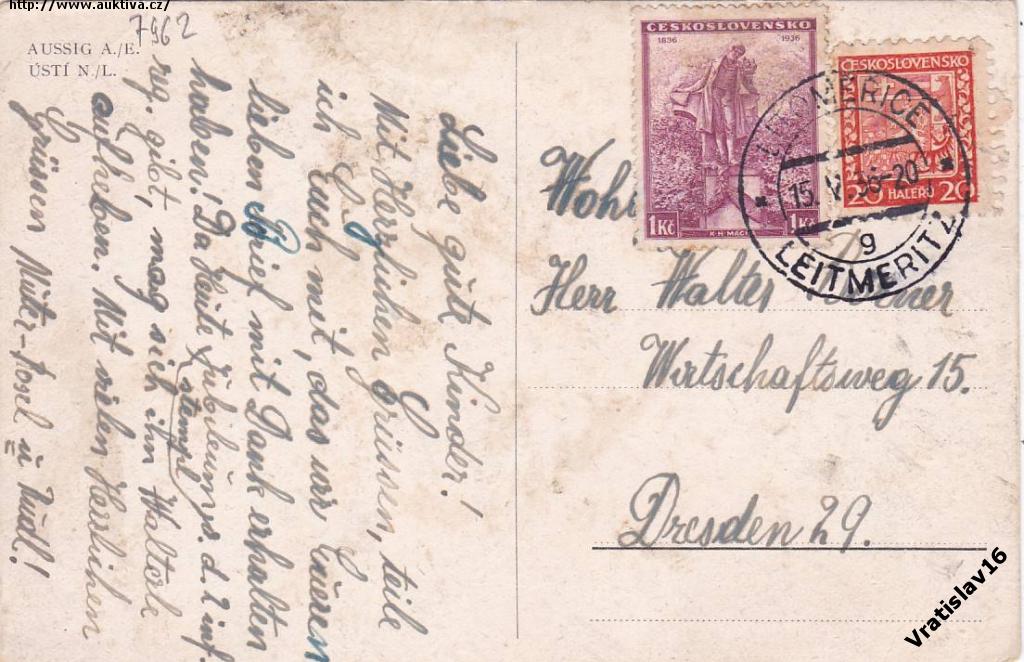 http://www.auktiva.cz/
7962
AUSSIG A./E.
ÚSTÍ N./L.
Liebe gute Kinder!
Mit Herzlichen Grüssen, teile
ich Euch mit, das wir Eueren
lieben Brief mit Dank erhalten
haben! Da Heute Jubileums. d. 2 inf.
stempl
rg. gibt, mag sich ihn
aufheben. Mit vielen Herzlichen
Grüssen Muter-Rosl u Rudl!
ČESKOSLOVENSKO
1836 1936
1 Kč 1 Kč
K·H·MÁCHA
ČESKOSLOVENSKO
20 HALÉŘŮ 20
LITOMĚŘICE
15. V. 36-20
9
LEITMERITZ
Herr Walter
Wirtschaftsweg 15.
Dresden 29.
Vratislav16